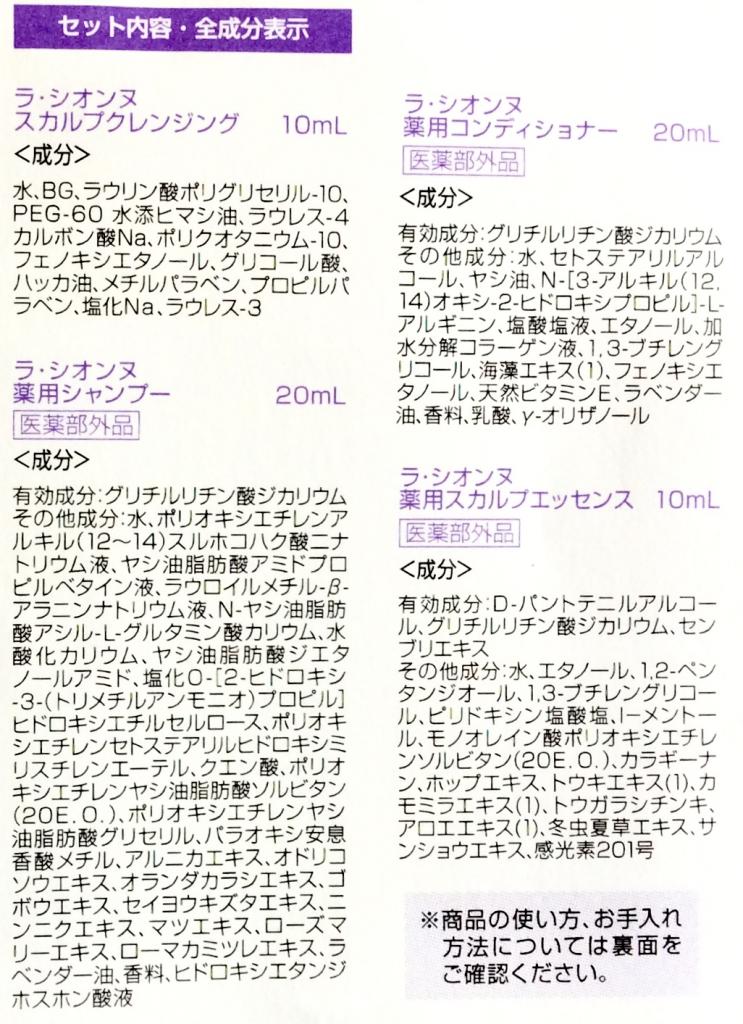 セット内容・全成分表示
ラ・シオンヌ
スカルプクレンジング 10mL
<成分>
水、BG、ラウリン酸ポリグリセリル-10、
PEG-60 水添ヒマシ油、ラウレス-4
カルボン酸Na、ポリクオタニウム-10、
フェノキシエタノール、グリコール酸、
ハッカ油、メチルパラベン、プロピルパ
ラベン、塩化Na、ラウレス-3
ラ・シオンヌ
薬用シャンプー 20mL
医薬部外品
<成分>
有効成分:グリチルリチン酸ジカリウム
その他成分:水、ポリオキシエチレンア
ルキル(12〜14)スルホコハク酸ニナ
トリウム液、ヤシ油脂肪酸アミドプロ
ピルベタイン液、ラウロイルメチル-β-
アラニンナトリウム液、N-ヤシ油脂肪
酸アシル-L-グルタミン酸カリウム、水
酸化カリウム、ヤシ油脂肪酸ジエタ
ノールアミド、塩化O-[2-ヒドロキシ
-3-(トリメチルアンモニオ)プロピル]
ヒドロキシエチルセルロース、ポリオキ
シエチレンセトステアリルヒドロキシミ
リスチレンエーテル、クエン酸、ポリオ
キシエチレンヤシ油脂肪酸ソルビタン
(20E.O.)、ポリオキシエチレンヤシ
油脂肪酸グリセリル、パラオキシ安息
香酸メチル、アルニカエキス、オドリコ
ソウエキス、オランダカラシエキス、ゴ
ボウエキス、セイヨウキズタエキス、ニ
ンニクエキス、マツエキス、ローズマ
リーエキス、ローマカミツレエキス、ラ
ベンダー油、香料、ヒドロキシエタンジ
ホスホン酸液
ラ・シオンヌ
薬用コンディショナー 20mL
医薬部外品
<成分>
有効成分:グリチルリチン酸ジカリウム
その他成分:水、セトステアリルアル
コール、ヤシ油、N-[3-アルキル(12,
14)オキシ-2-ヒドロキシプロピル]-L-
アルギニン、塩酸塩液、エタノール、加
水分解コラーゲン液、1,3-ブチレング
リコール、海藻エキス(1)、フェノキシエ
タノール、天然ビタミンE、ラベンダー
油、香料、乳酸、γ-オリザノール
ラ・シオンヌ
薬用スカルプエッセンス 10mL
医薬部外品
<成分>
有効成分:D-パントテニルアルコー
ル、グリチルリチン酸ジカリウム、セン
ブリエキス
その他成分:水、エタノール、1,2-ペン
タンジオール、1,3-ブチレングリコー
ル、ピリドキシン塩酸塩、l-メントー
ル、モノオレイン酸ポリオキシエチレ
ンソルビタン(20E.O.)、カラギーナ
ン、ホップエキス、トウキエキス(1)、カ
モミラエキス(1)、トウガラシチンキ、
アロエエキス(1)、冬虫夏草エキス、サ
ンショウエキス、感光素201号
※商品の使い方、お手入れ
方法については裏面を
ご確認ください。